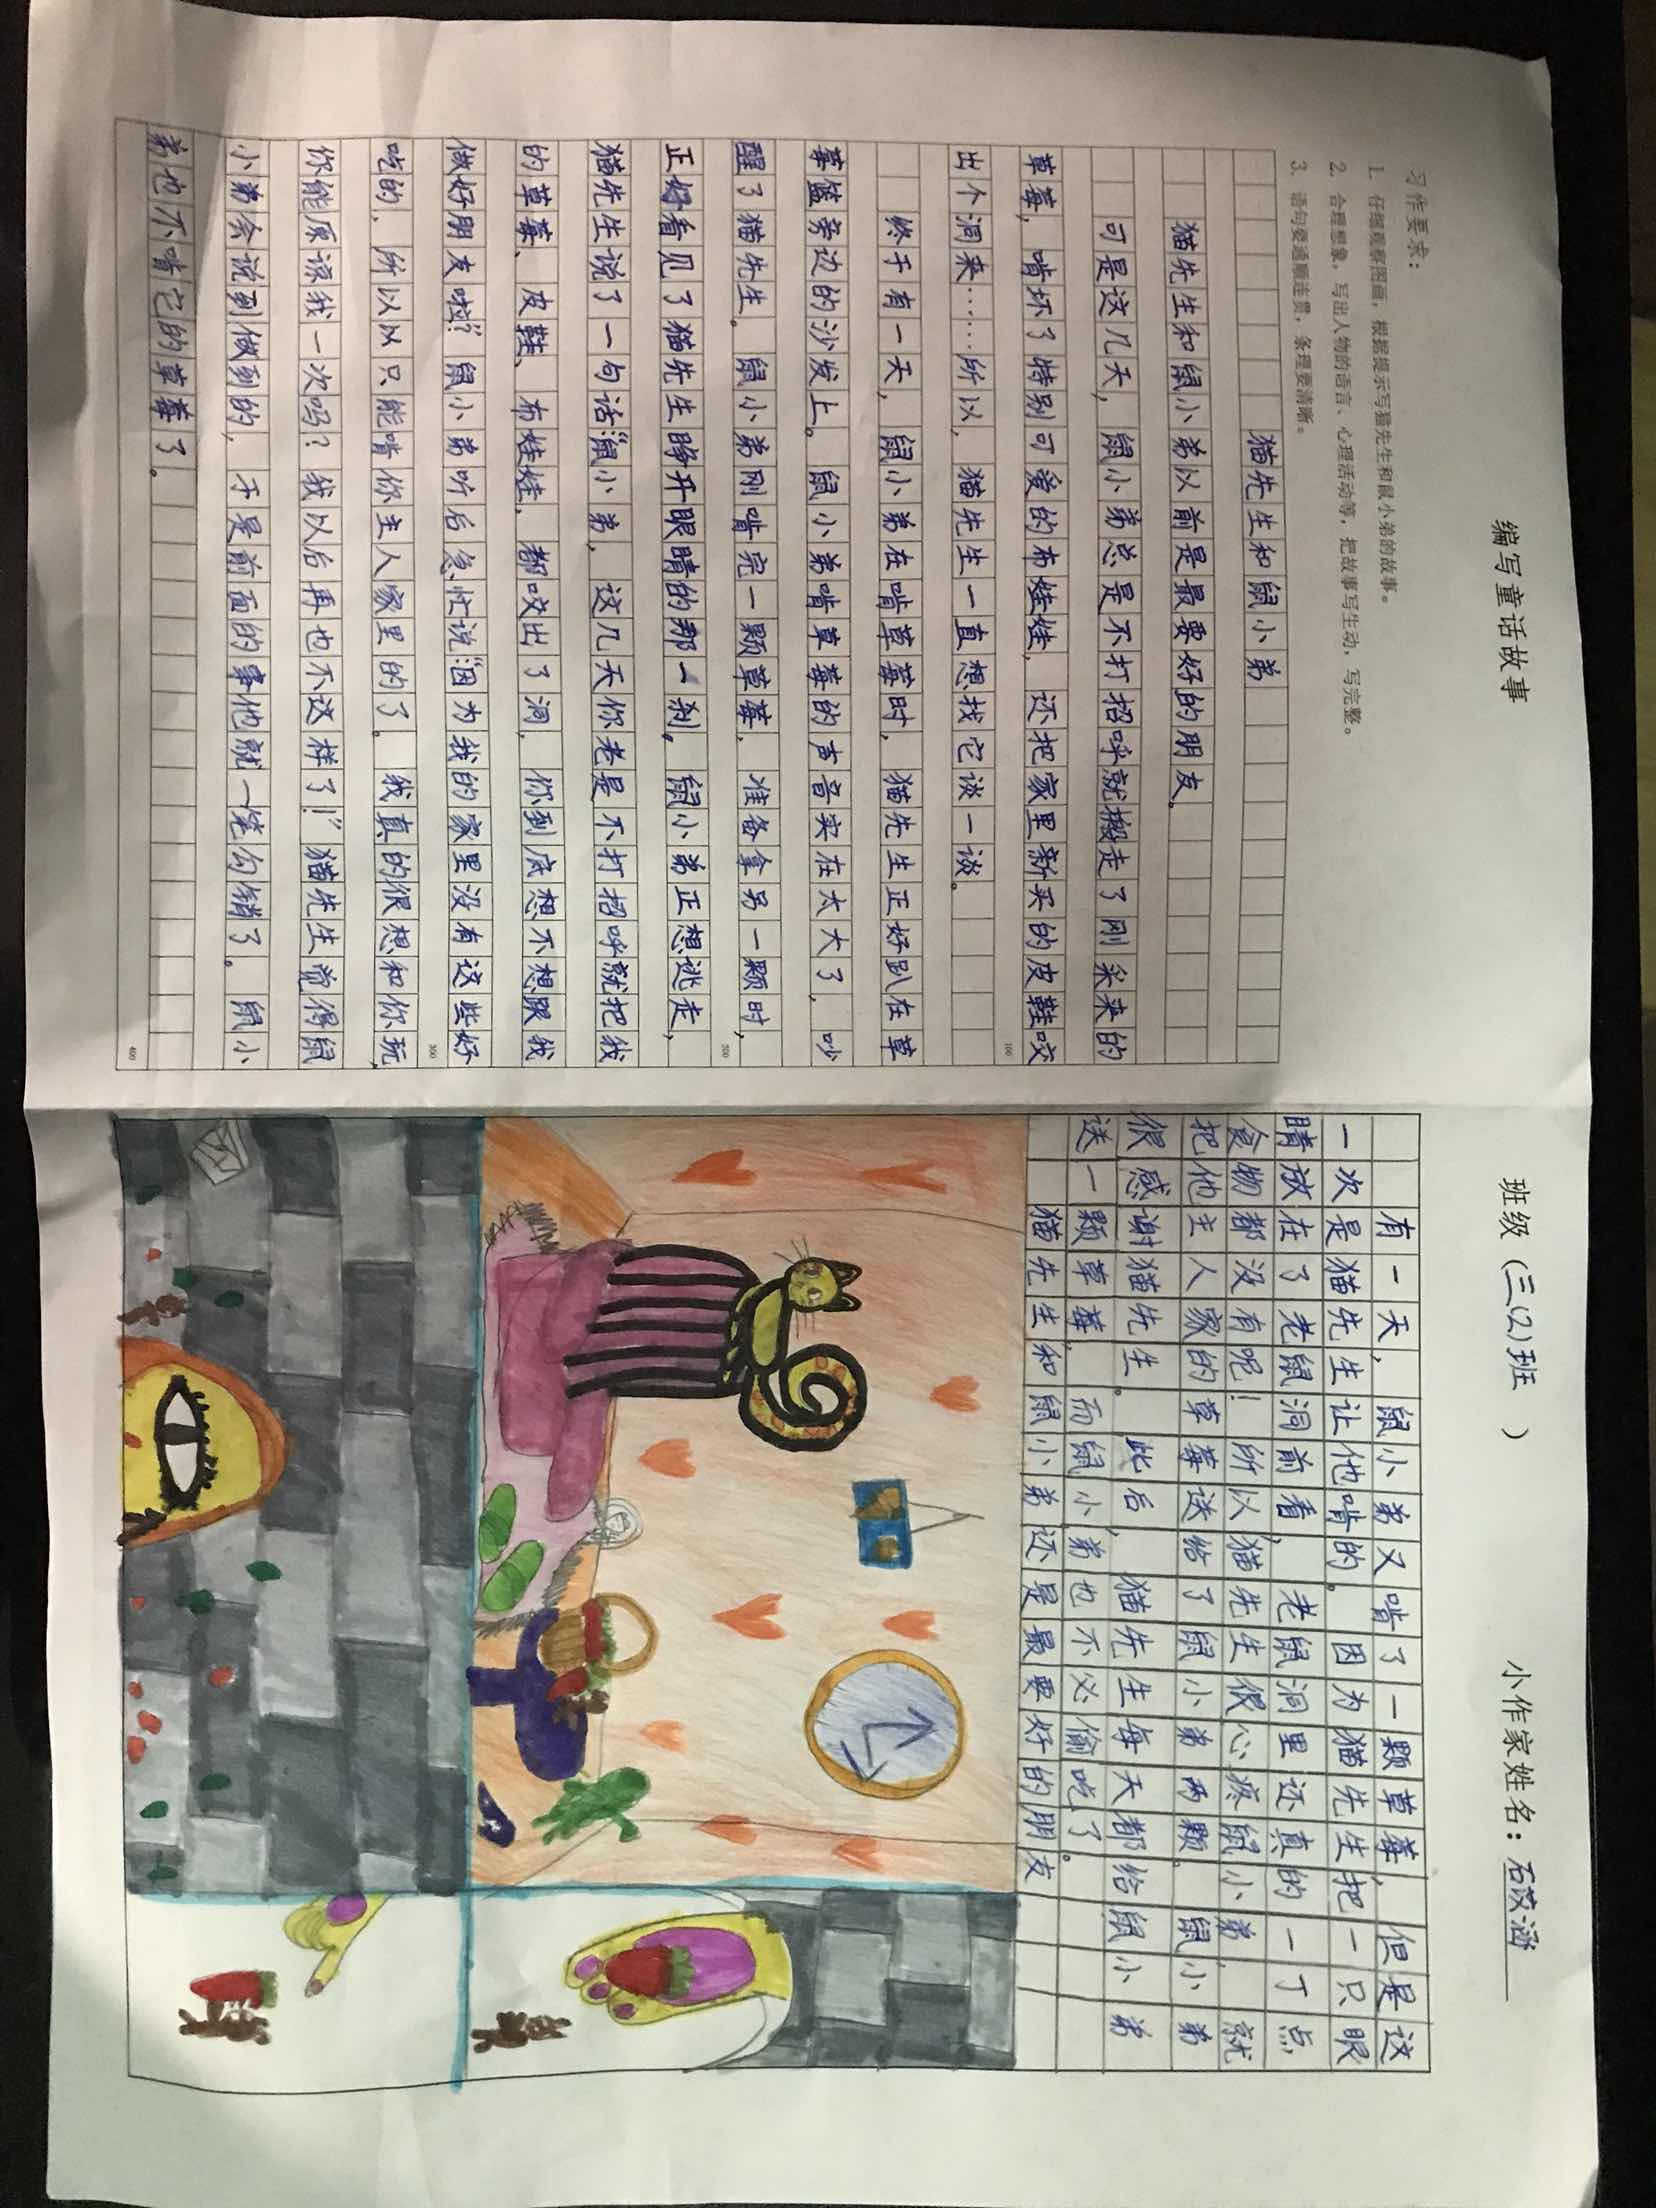 编写童话故事
习作要求：
1. 仔细观察图画，根据提示写猫先生和鼠小弟的故事。
2. 合理想象，写出人物的语言、心理活动等，把故事写生动，写完整。
3. 语句要通顺连贯，条理要清晰。
猫先生和鼠小弟
猫先生和鼠小弟以前是最要好的朋友。
可是这几天，鼠小弟总是不打招呼就搬走了刚采来的
草莓，啃坏了特别可爱的布娃娃，还把家里新买的皮鞋咬
出个洞来……所以，猫先生一直想找它谈一谈。
100
终于有一天，鼠小弟在啃草莓时，猫先生正好趴在草
莓篮旁边的沙发上。鼠小弟啃草莓的声音实在太大了，吵
醒了猫先生。鼠小弟刚啃完一颗草莓，准备拿另一颗时，
正好看见了猫先生睁开眼睛的那一刹。鼠小弟正想逃走，
200
猫先生说了一句话“鼠小弟，这几天你老是不打招呼就把我
的草莓、皮鞋、布娃娃，都咬出了洞，你到底想不想跟我
做好朋友啦？”鼠小弟听后急忙说“因为我的家里没有这些好
吃的，所以以只能啃你主人家里的了。我真的很想和你玩，
300
你能原谅我一次吗？我以后再也不这样了！”猫先生觉得鼠
小弟会说到做到的，于是前面的事他就一笔勾销了。鼠小
弟也不啃它的草莓了。
400
班级（三(2)班 ）
小作家姓名：石苡涵
有一天，鼠小弟又啃了一颗草莓，但是这
一次是猫先生让他啃的。因为猫先生把一只眼
睛放在了老鼠洞前看，老鼠洞里还真的一丁点
食物都没有呢！所以猫先生很心疼鼠小弟，就
把他主人家的草莓送给了鼠小弟两颗。鼠小弟
很感谢猫先生。此后，猫先生每天都给鼠小弟
送一颗草莓，而鼠小弟也不必偷吃了。
猫先生和鼠小弟还是最要好的朋友